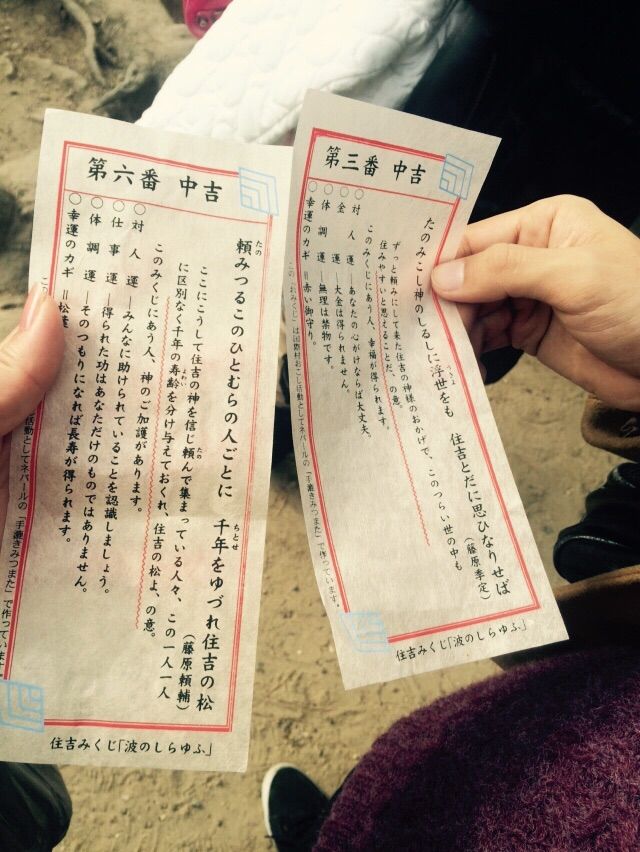 第六番 中吉
頼みつるこのひとむらの人ごとに 千年をゆづれ住吉の松
たの
ちとせ
(藤原頼輔)
ここにこうして住吉の神を信じ頼んで集まっている人々、この一人一人
たの
に区別なく千年の寿齢を分け与えておくれ、住吉の松よ、の意。
よわい
このみくじにあう人、神のご加護があります。
○対人運―みんなに助けられていることを認識しましょう。
○仕事運―得られた功はあなただけのものではありません。
○体調運―そのつもりになれば長寿が得られます。
○幸運のカギ=松葉
活動としてネパールの「手漉きみつまた」で作っています
住吉みくじ「波のしらゆふ」
第三番 中吉
たのみこし神のしるしに浮世をも 住吉とだに思ひなりせば
うきよ
(藤原季定)
ずっと頼みにして来た住吉の神様のおかげで、このつらい世の中も
住みやすいと思えることだ、の意。
このみくじにあう人、幸福が得られます。
○対人運―あなたの心がけならば大丈夫。
○金運―大金は得られません。
○体調運―無理は禁物です。
○幸運のカギ=赤い御守り。
この「おみくじ」は国際村おこし活動としてネパールの「手漉きみつまた」で作っています。
住吉みくじ「波のしらゆふ」